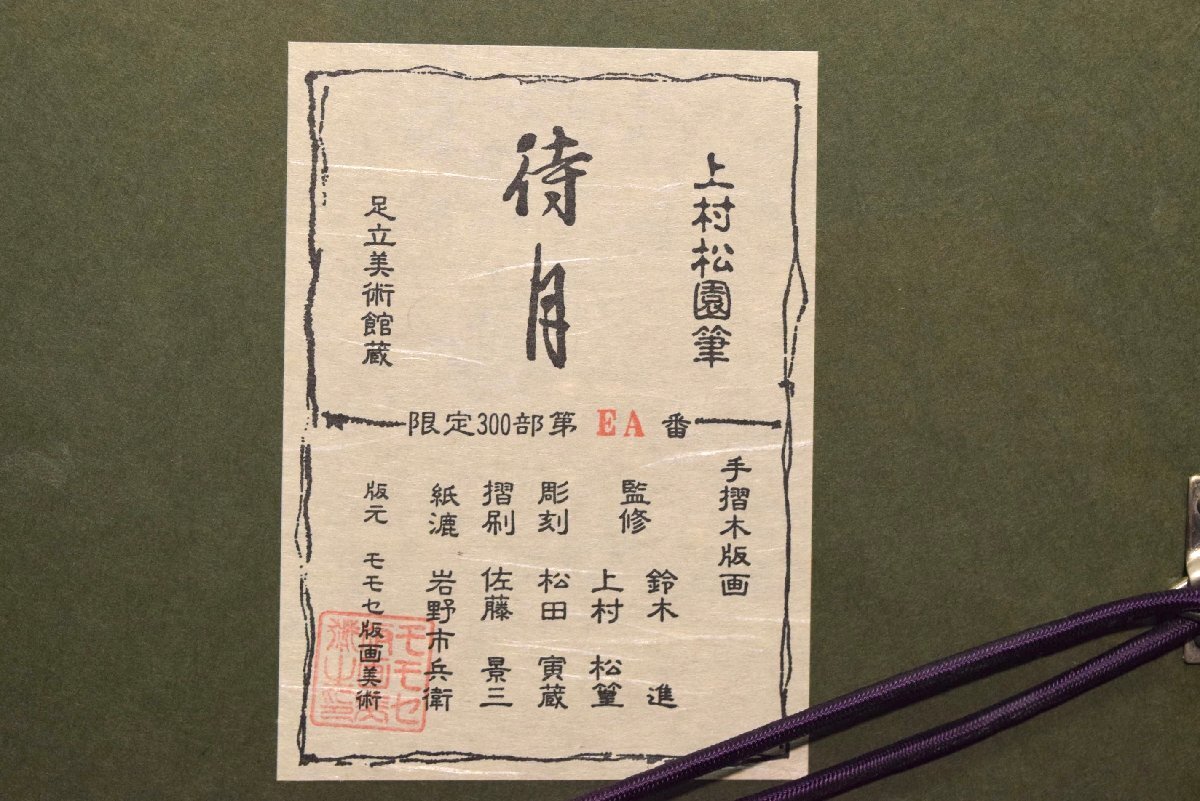 上村松園筆
待月
足立美術館蔵
限定300部第 EA 番
手摺木版画
監修 鈴木 進
上村 松篁
彫刻 松田 寅蔵
摺刷 佐藤 景三
紙漉 岩野市兵衛
版元 モモセ版画美術
モモセ